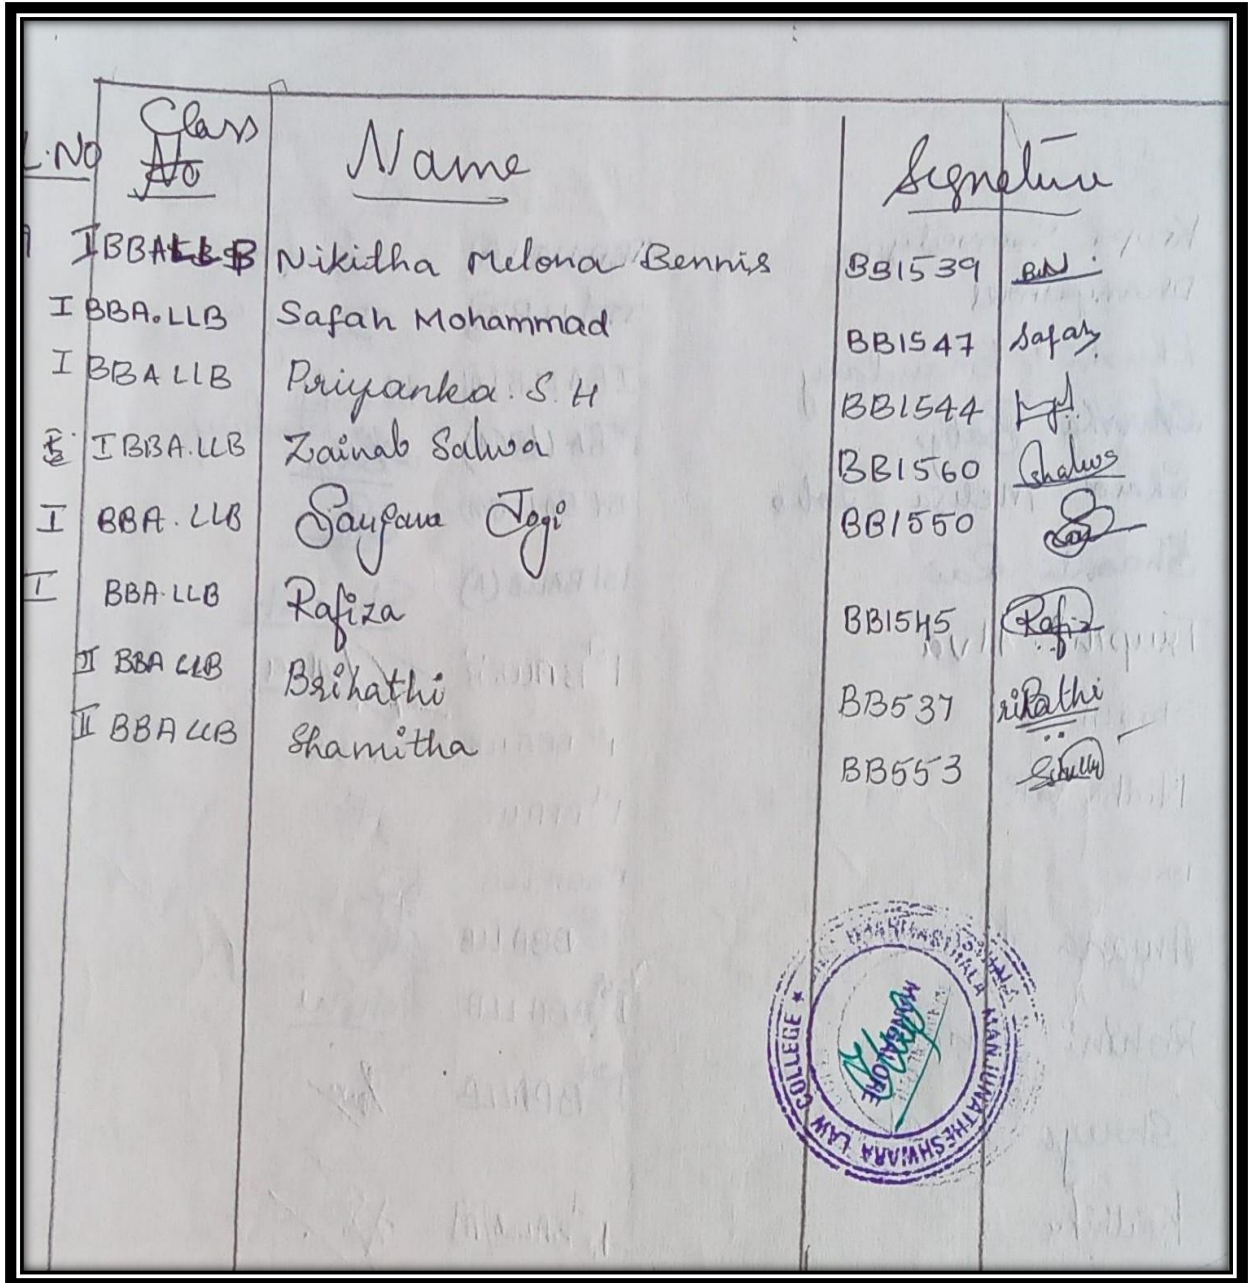 L.NO Class No Name Signature
I BBALLB Nikitha Melona Bennis BB1539
I BBA.LLB Safah Mohammad BB1547 Safah
I BBA LLB Priyanka. S. H BB1544
I BBA.LLB Zainab Salwa BB1560
I BBA. LLB Jogi BB1550
I BBA.LLB Rafiza BB1545 Rafiz
II BBA LLB Brihathi BB537 rihathi
II BBA LLB Shamitha BB553
SHRI DHARMASTHALA MANJUNATHESHWARA LAW COLLEGE ★
MANGALORE